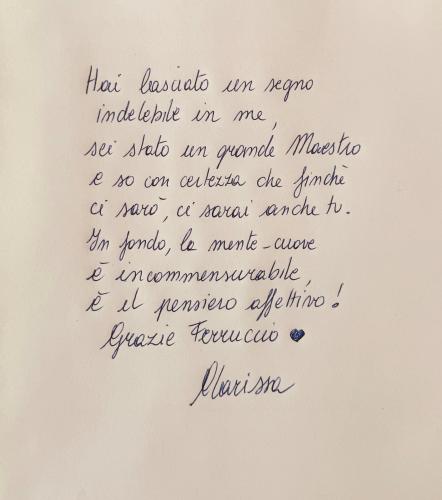 Hai lasciato un segno
indelebile in me,
sei stato un grande Maestro
e so con certezza che finchè
ci sarò, ci sarai anche tu.
In fondo, la mente-cuore
è incommensurabile,
è il pensiero affettivo!
Grazie Ferruccio
Marissa